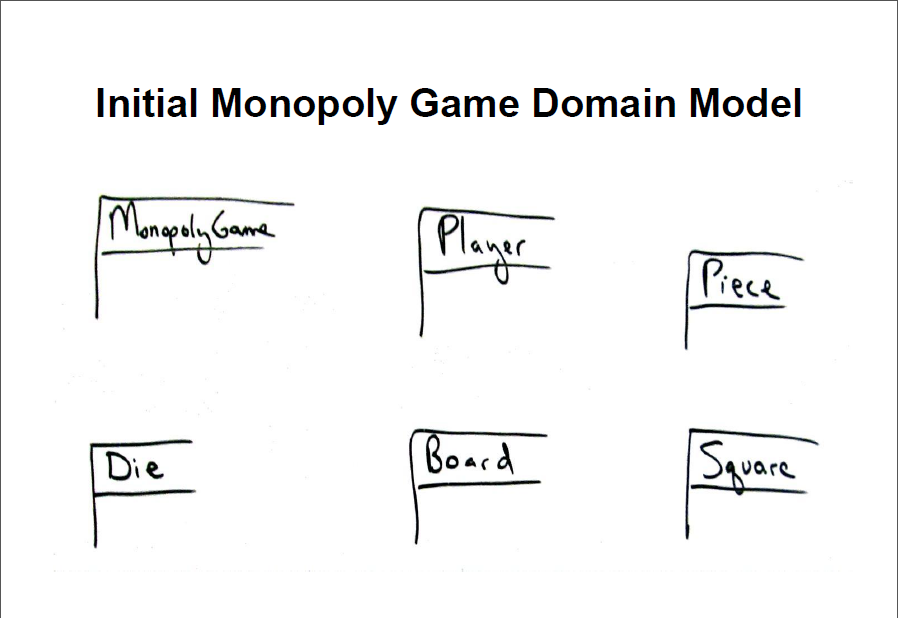 Initial Monopoly Game Domain Model
MonopolyGame
Player
Piece
Die
Board
Square